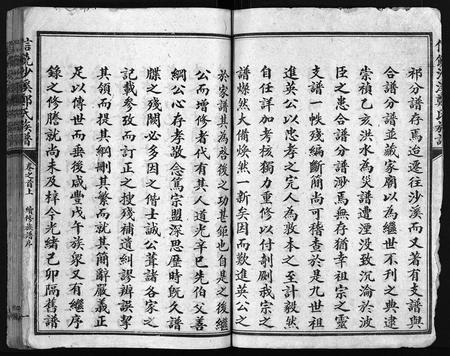 祁分譜存焉迨遷往沙溪而又著有支譜與
合譜分譜並藏家廟以為繼世不刊之典逮
崇禎乙亥洪水為災譜遭湮没致沉淪於波
臣之患合譜分譜渺焉無存猶幸祖宗之靈
支譜一帙殘編斷簡尚可稽查於是九世祖
進英公以忠孝之完人為敦本之至計毅然
自任詳加考核獨力重修以付剞劂我宗之
譜燦然大備煥然一新矣因而數進英公之
於家譜其為啓後之功甚鉅也自是之後繼
公而增修者代有其人道光辛巳先伯父善
綱公心存孝敬念篤宗盟深思歷時既久譜
牒之殘闕必多因之偕士誠公葺諸各家之
記載參攷而訂正之搜殘補遺糾謬辨誤挈
其領而提其綱刪其繁而就其簡辭嚴義正
足以傳世而垂後咸豐戊午族衆又有繼序
錄之修騰就尚未及梓今光緒己卯隔舊譜
信饒沙溪鄭氏族譜
卷之首上
續修族譜序